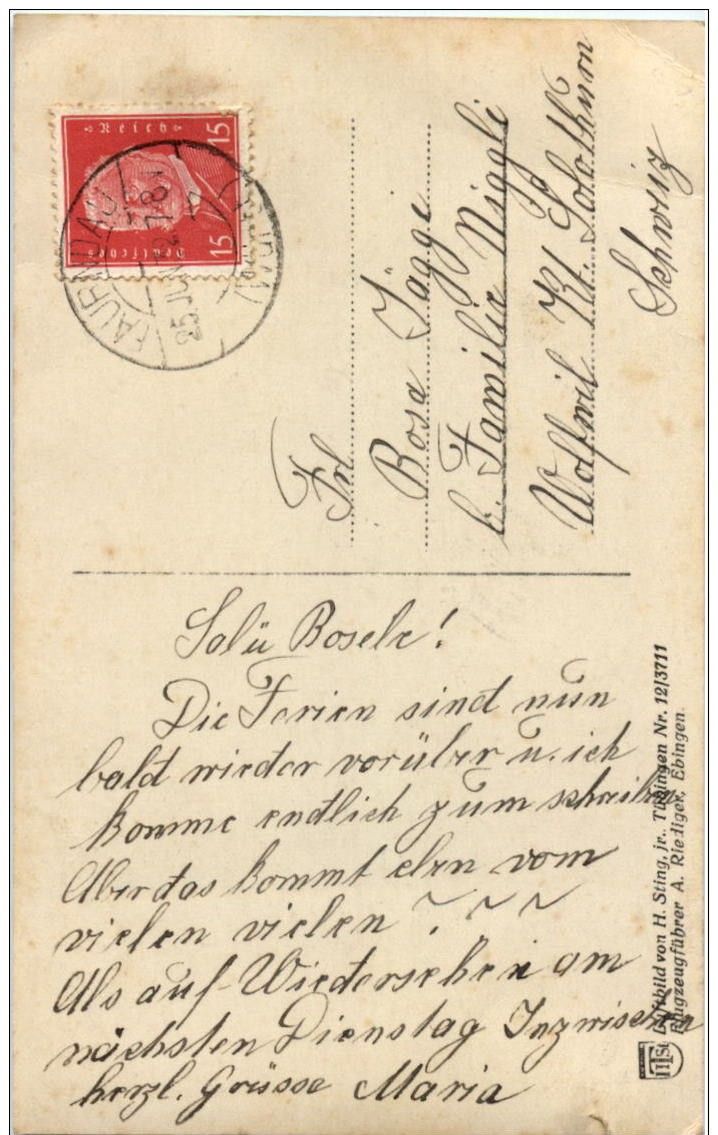 Deutsches Reich
15 15
25 JUN
Frl
Rosa Jägge
b. Familie Niggli
Wolfwil Kt. Solothurn
Schweiz
Salü Rosele!
Die Ferien sind nun
bald wieder vorüber u. ich
komme endlich zum schreiben
Aber das kommt eben vom
vielen vielen ? ~ ~ ~
Als auf Wiedersehen am
nächsten Dienstag Inzwischen
herzl. Grüsse Maria
Luftbild von H. Sting, jr., Tübingen Nr. 12/3711
Flugzeugführer A. Riediger, Ebingen.